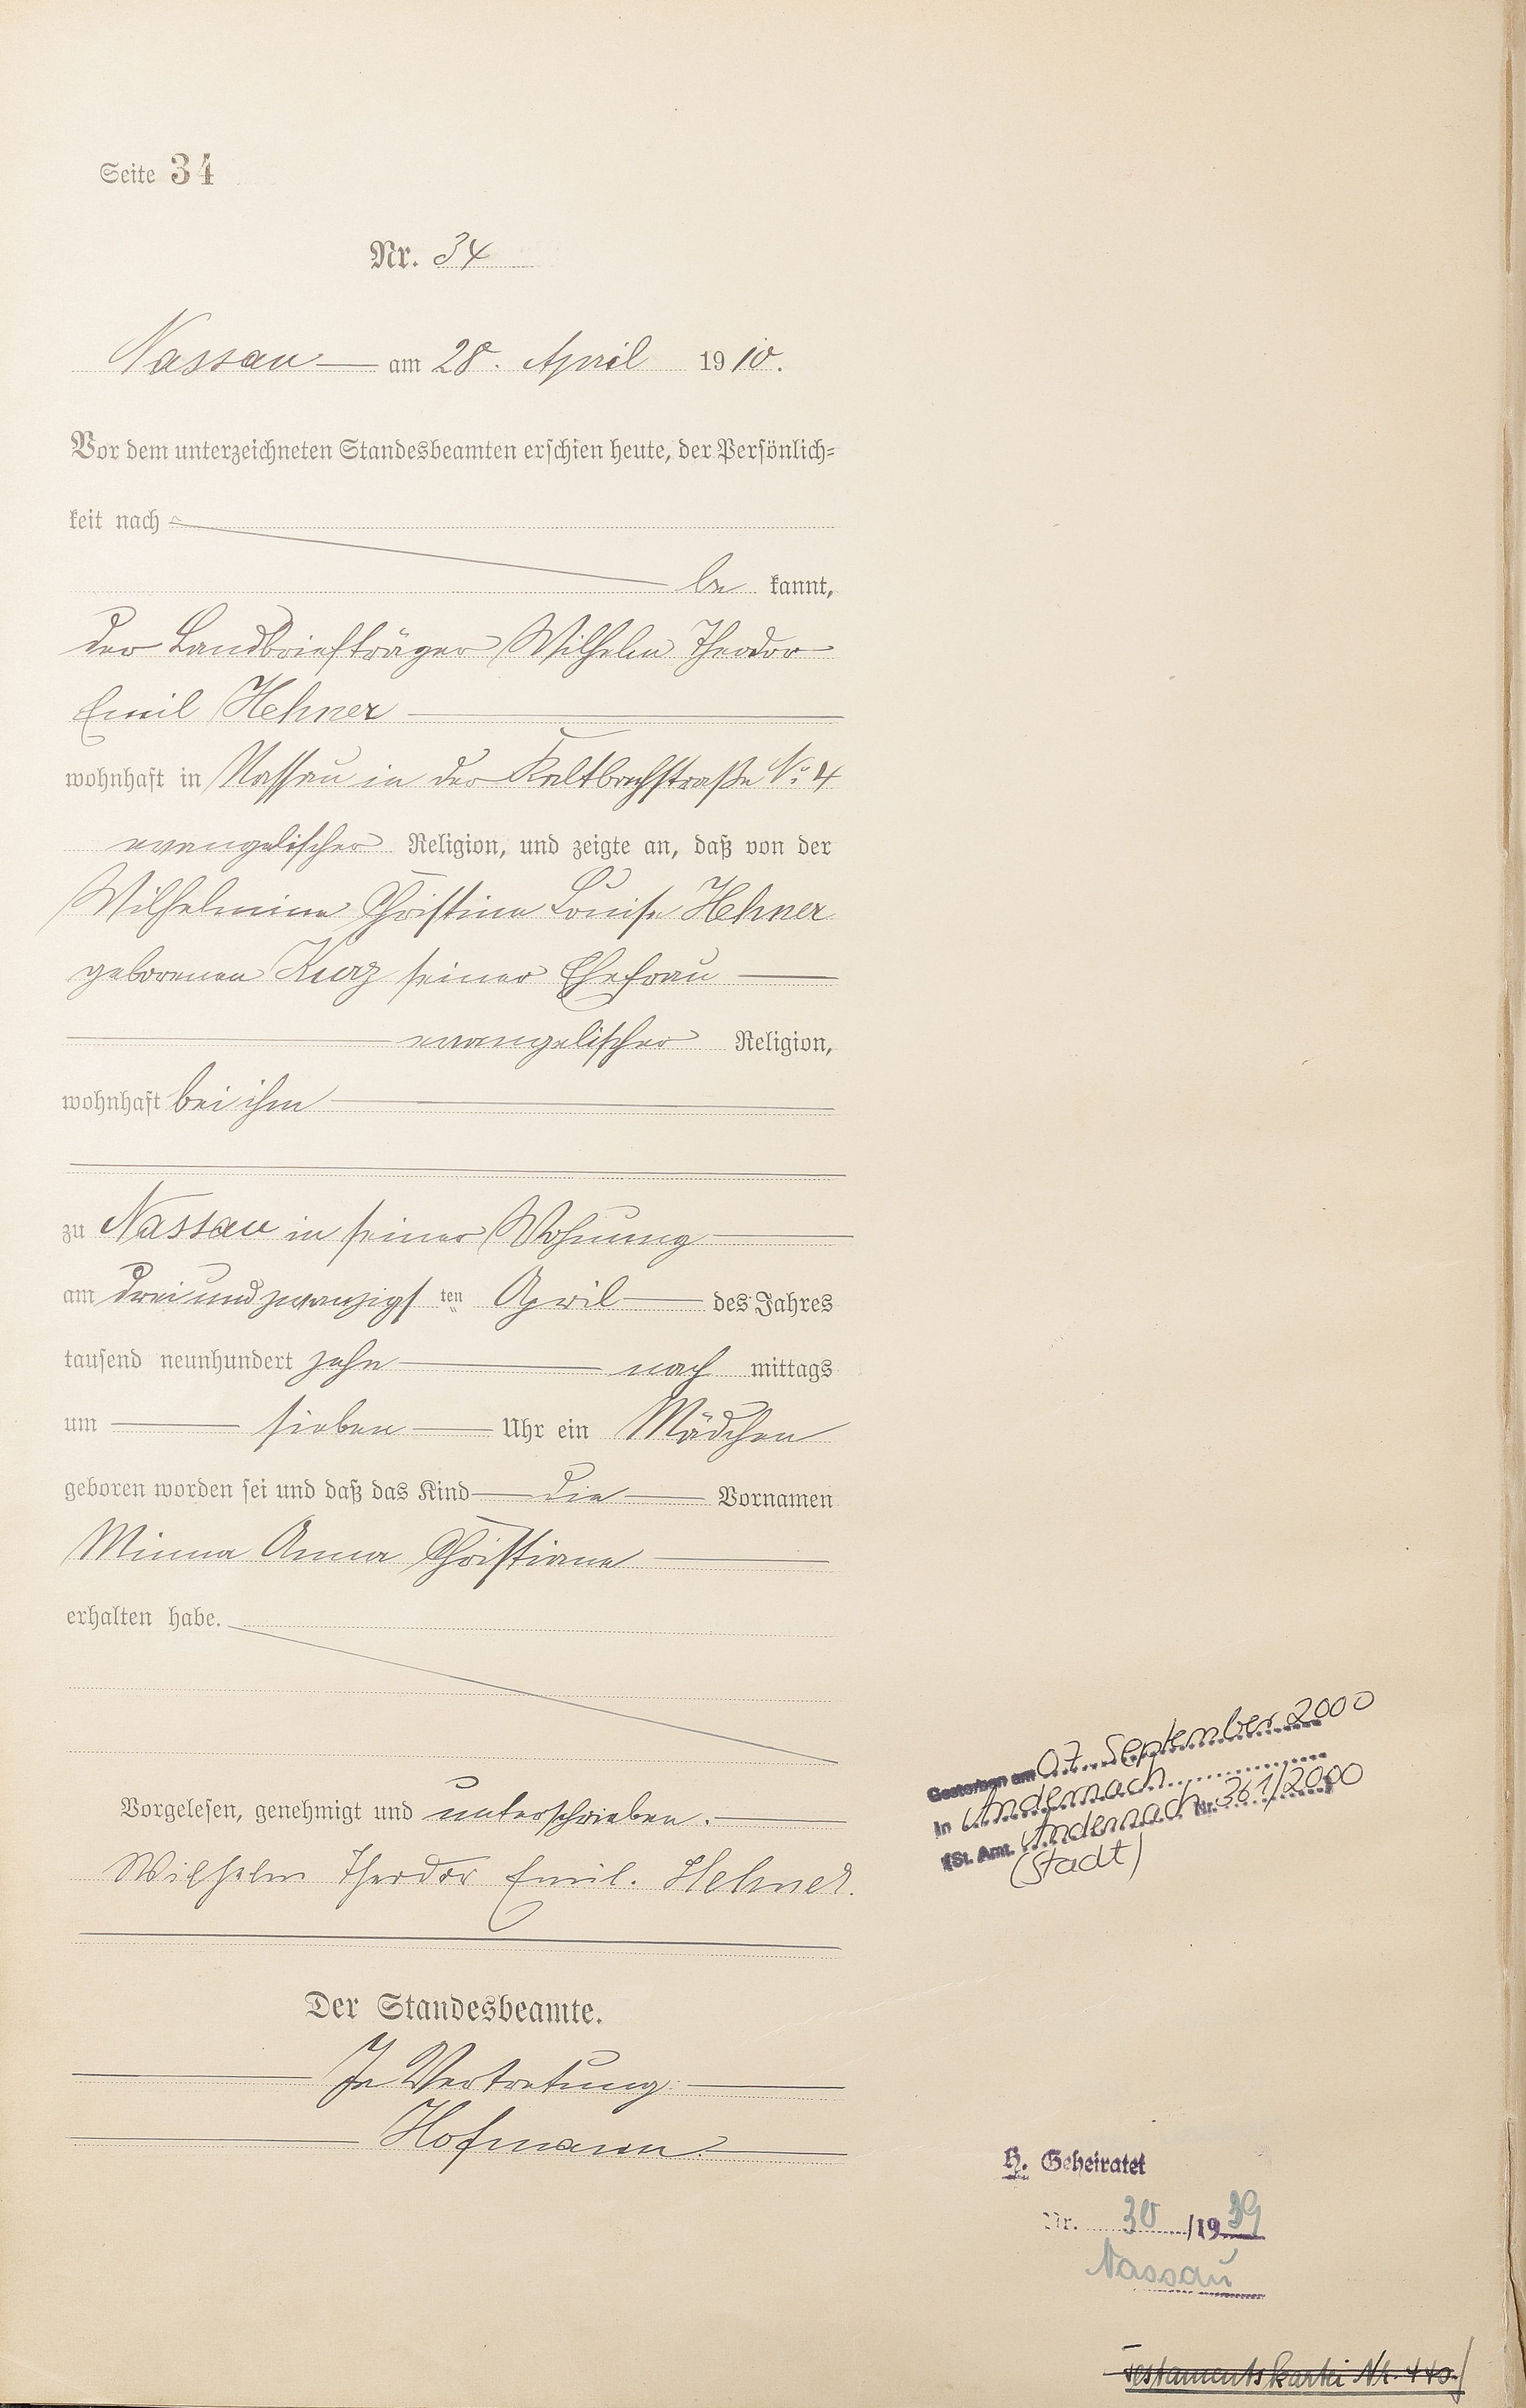 Seite 34
Nr. 34
Nassau am 28. April 1910.
Vor dem unterzeichneten Standesbeamten erschien heute, der Persönlich-
keit nach
be kannt,
der Landbriefträger Wilhelm Theodor
Emil Hehner
wohnhaft in Nassau in der Kaltbachstraße No. 4
evangelischer Religion, und zeigte an, daß von der
Wilhelmine Christine Louise Hehner
geborenen Kurz seiner Ehefrau
evangelischer Religion,
wohnhaft bei ihm
zu Nassau in seiner Wohnung
am dreiundzwanzigsten April des Jahres
tausend neunhundert zehn nach mittags
um sieben Uhr ein Mädchen
geboren worden sei und daß das Kind die Vornamen
Minna Anna Christiane
erhalten habe.
Vorgelesen, genehmigt und unterschrieben.
Wilhelm Theodor Emil. Hehner.
Der Standesbeamte.
In Vertretung
Hofmann
Gestorben am 07. September 2000
in Andernach
(St. Amt. Andernach Nr. 361/2000)
(Stadt)
H. Geheiratet
Nr. 30 /1939
Nassau
Testamentskartei Nr. 440